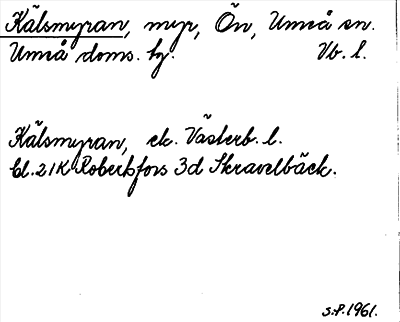 Kälsmyran, myr, Ön, Umeå sn.
Umeå doms. hg. Vb. l.
Kälsmyran, ek. Västerb. l.
bl. 21K Robertsfors 3d Skravelbäck.
S.P. 1961.